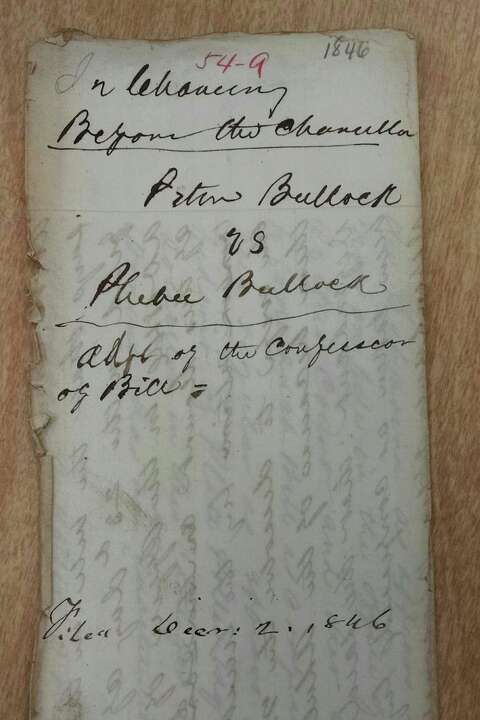 54-9
1846
In Chancery
Before the Chancellor
Bullock
vs
Phebee Bullock
of the Confession
of Bill =
Filed Decr: 2. 1846